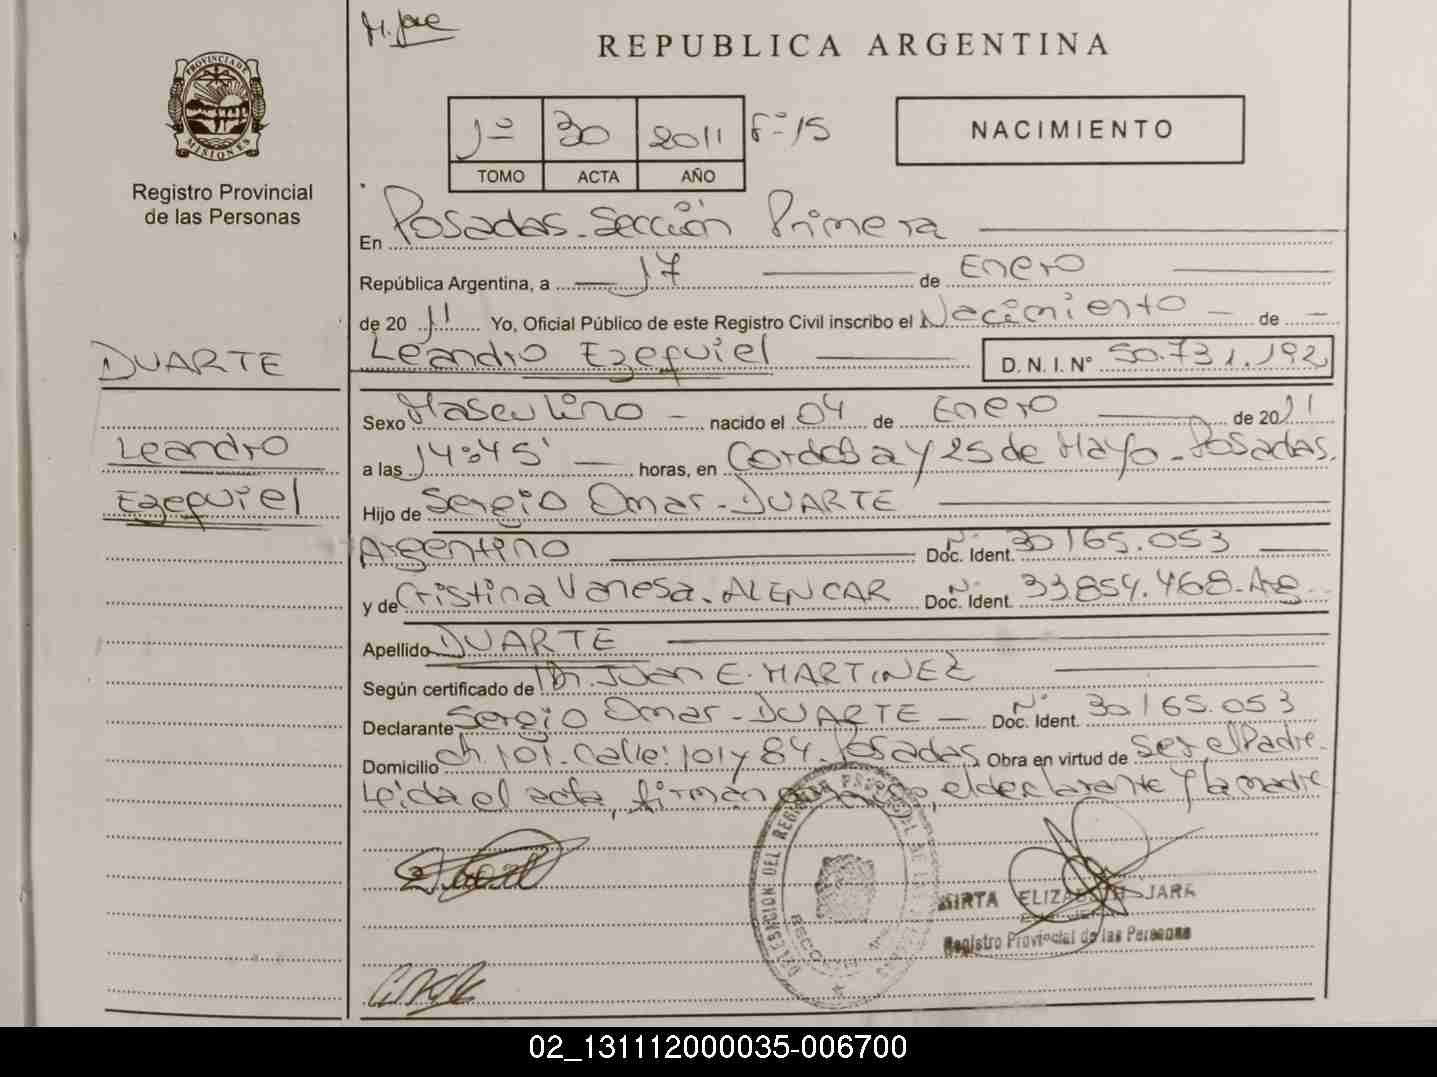 M. José
REPUBLICA ARGENTINA
PROVINCIA DE
MISIONES
Registro Provincial
de las Personas
1º 30 2011 Fº 15
TOMO ACTA AÑO
NACIMIENTO
En Posadas - Sección Primera
República Argentina, a 17 de Enero
de 2011 Yo, Oficial Público de este Registro Civil inscribo el Nacimiento - de -
Leandro Ezequiel D. N. I. Nº 50.731.192
DUARTE
Leandro
Ezequiel
Sexo Masculino - nacido el 04 de Enero de 2011
a las 14:45' - horas, en Cordoba y 25 de Mayo - Posadas.
Hijo de Sergio Omar - DUARTE
Argentino Doc. Ident. Nº 30165.053
y de Cristina Vanesa - ALENCAR Doc. Ident. Nº 33854.468 - Arg
Apellido DUARTE
Según certificado de Dr. Juan E. MARTINEZ
Declarante Sergio Omar - DUARTE - Doc. Ident. Nº 30165.053
Domicilio ch 101 - Calle: 101 y 84 - Posadas Obra en virtud de Ser el Padre.
Leida el acta, firman, el declarante y la madre
DELEGACION DEL REGISTRO PROVINCIAL DE LAS PERSONAS
SECCION
MIRTA ELIZABETH JARA
Registro Provincial de las Personas
02_131112000035-006700